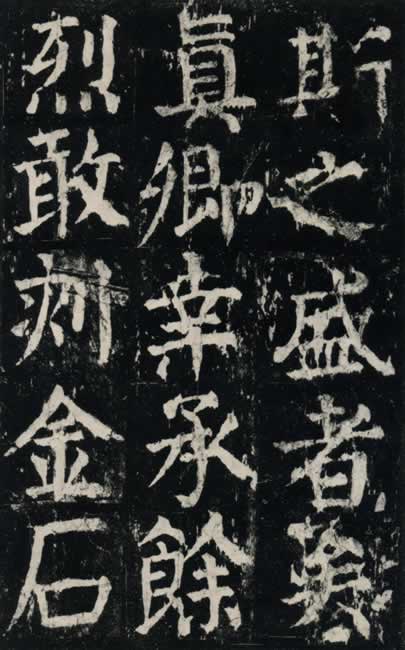 斯之盛者
眞卿幸承餘
烈敢刻金石